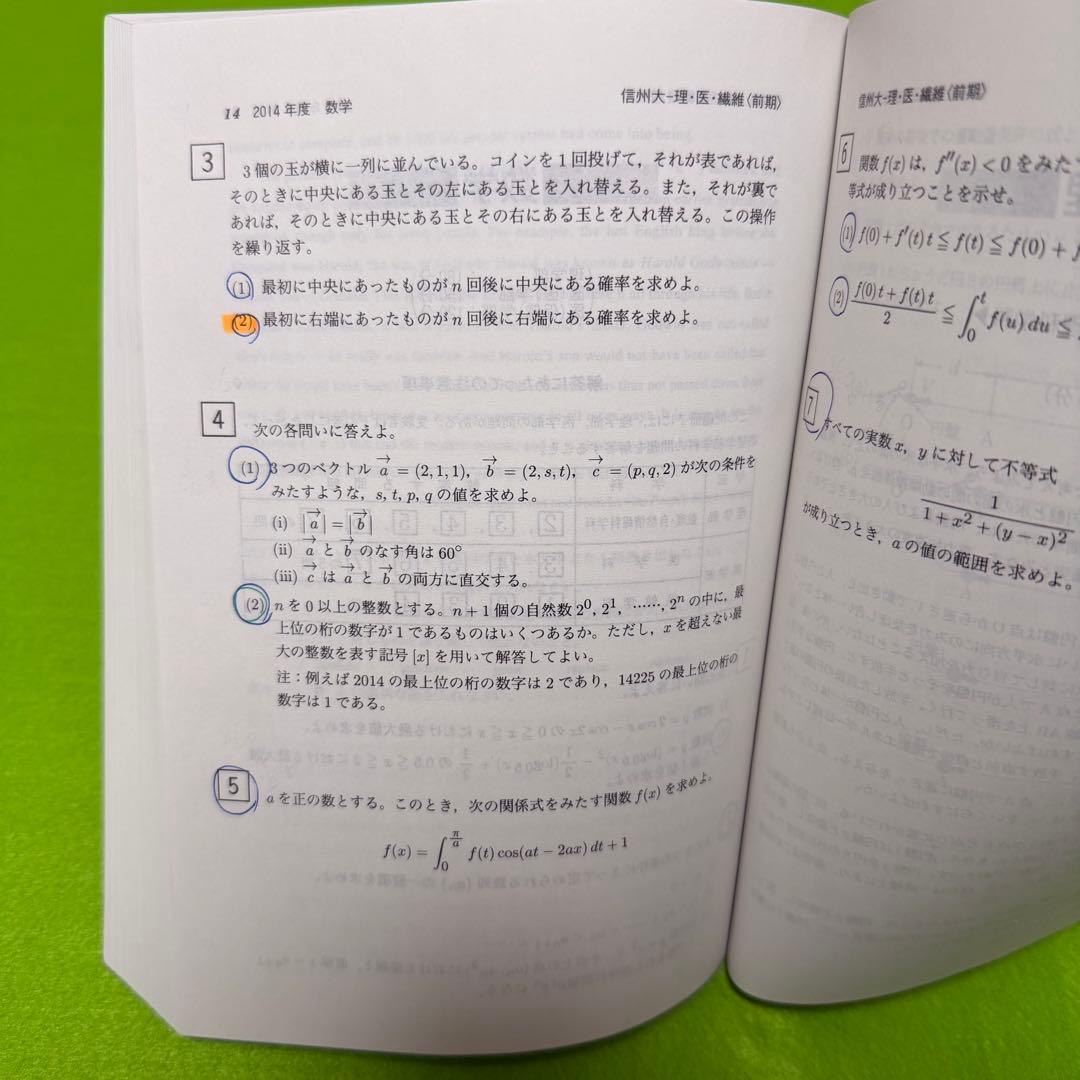 14 2014年度 数学
信州大-理・医・繊維〈前期〉
3
3個の玉が横に一列に並んでいる。コインを1回投げて，それが表であれば，
そのときに中央にある玉とその左にある玉とを入れ替える。また，それが裏で
あれば，そのときに中央にある玉とその右にある玉とを入れ替える。この操作
を繰り返す。
(1) 最初に中央にあったものが n 回後に中央にある確率を求めよ。
(2) 最初に右端にあったものが n 回後に右端にある確率を求めよ。
4
次の各問いに答えよ。
(1) 3つのベクトル $\vec{a}$ = (2, 1, 1), $\vec{b}$ = (2, s, t), $\vec{c}$ = (p, q, 2) が次の条件を
みたすような，s, t, p, q の値を求めよ。
(i) |$\vec{a}$| = |$\vec{b}$|
(ii) $\vec{a}$ と $\vec{b}$ のなす角は 60°
(iii) $\vec{c}$ は $\vec{a}$ と $\vec{b}$ の両方に直交する。
(2) n を 0 以上の整数とする。n + 1 個の自然数 $2^0, 2^1, ……, 2^n$ の中に，最
上位の桁の数字が 1 であるものはいくつあるか。ただし，x を超えない最
大の整数を表す記号 [x] を用いて解答してよい。
注：例えば 2014 の最上位の桁の数字は 2 であり，14225 の最上位の桁の
数字は 1 である。
5
a を正の数とする。このとき，次の関係式をみたす関数 f(x) を求めよ。
$f(x) = \int_0^{\frac{\pi}{a}} f(t) \cos(at - 2ax) \, dt + 1$
信州大-理・医・繊維〈前期〉
6
関数 f(x) は，f″(x) < 0 をみた
等式が成り立つことを示せ。
(1) f(0) + f′(t) t ≦ f(t) ≦ f(0) +
(2) $\frac{f(0)t + f(t)t}{2} ≦ \int_0^t f(u) \, du ≦$
7
すべての実数 x, y に対して不等式
$\frac{1}{1 + x^2 + (y - x)^2}$
が成り立つとき，a の値の範囲を求めよ。